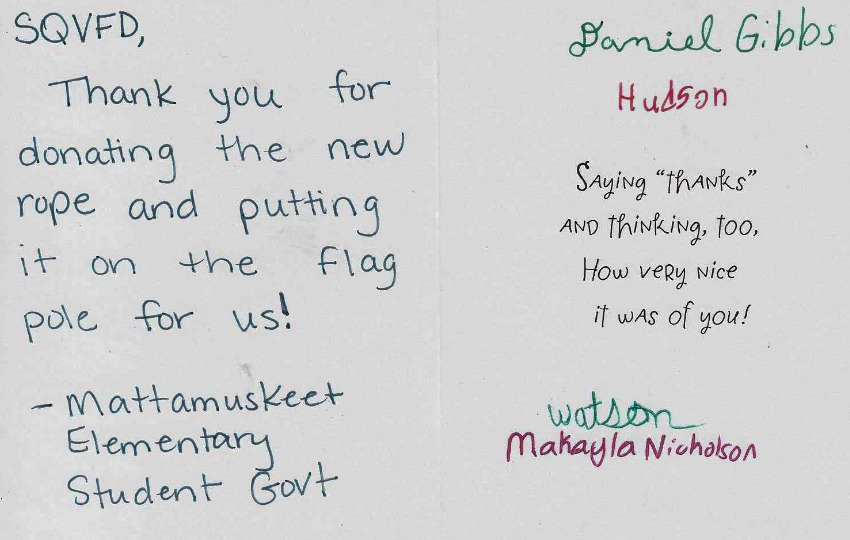 SQVFD,
Thank you for
donating the new
rope and putting
it on the flag
pole for us!
- Mattamuskeet
Elementary
Student Govt
Daniel Gibbs
Hudson
Saying "thanks"
and thinking, too,
How very nice
it was of you!
Watson
Makayla Nicholson